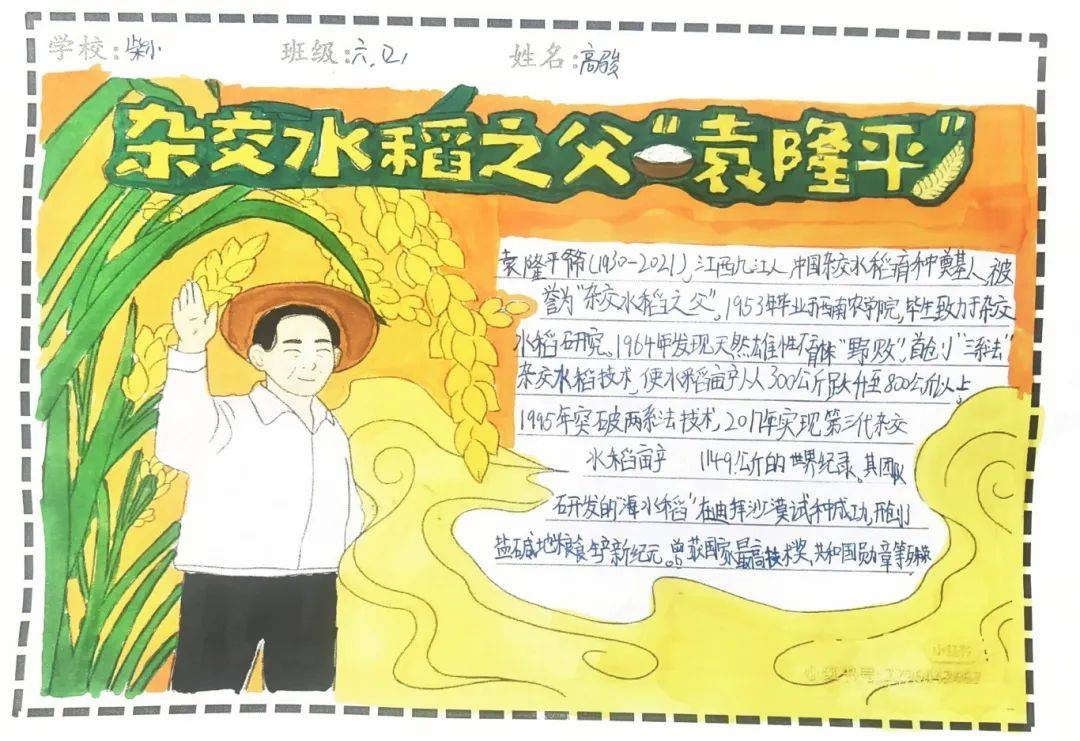 学校:柴小 班级:六.(2) 姓名:高骏
杂交水稻之父“袁隆平”
袁隆平爷爷(1930-2021),江西九江人,中国杂交水稻育种奠基人,被
誉为“杂交水稻之父”。1953年毕业西南农学院,毕生致力于杂交
水稻研究。1964年发现天然雄性不育株“野败”,首创“三系法”
杂交水稻技术,使水稻亩产从300公斤跃升至800公斤以上。
1995年突破两系法技术,2017年实现第三代杂交
水稻亩产 1149公斤的世界纪录。其团队
研发的“海水稻”在迪拜沙漠试种成功,开创
盐碱地粮食生产新纪元。曾获国家最高技术奖,共和国勋章等
小红书
小红书号: